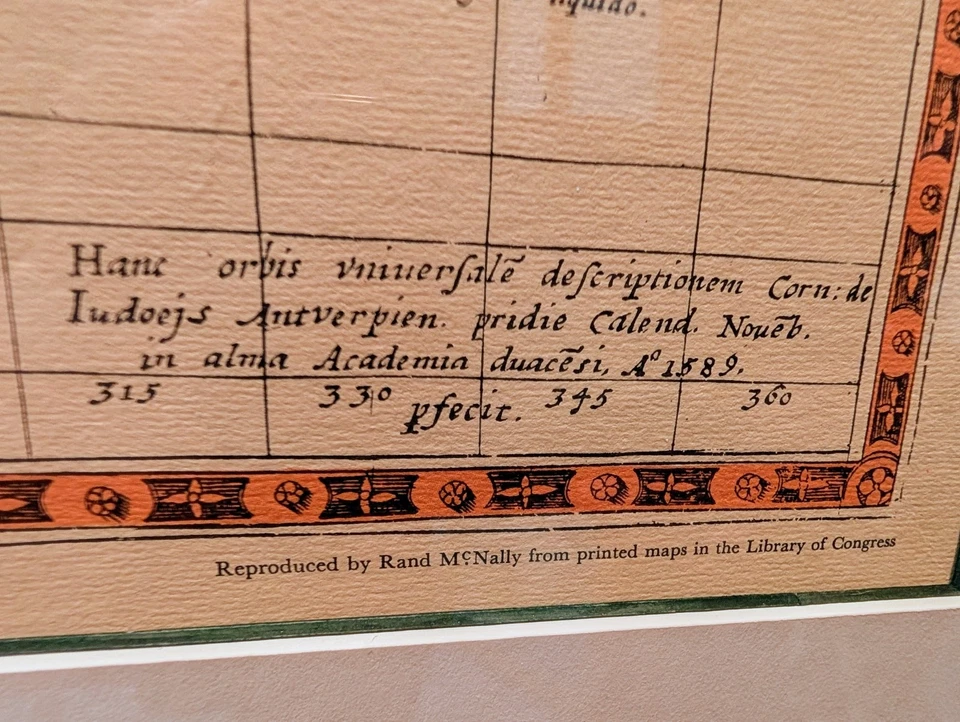 liquido.
Hanc orbis vniuerſalē deſcriptionem Corn: de
Iudoejs Antverpien. pridie Calend. Nouēb.
in alma Academia duacēsi, Aº 1589.
315 330 345 360
pfecit.
Reproduced by Rand McNally from printed maps in the Library of Congress